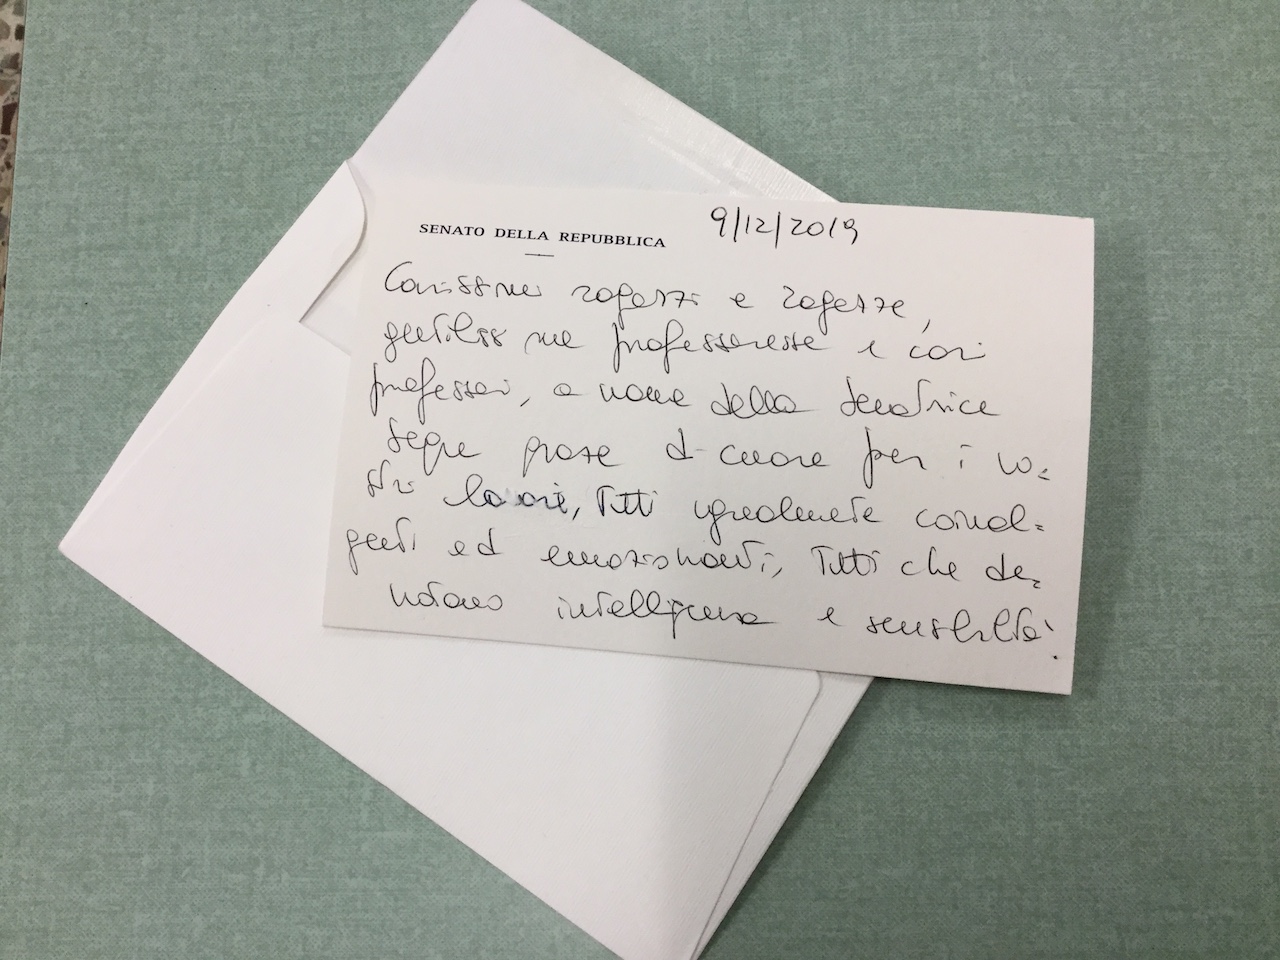 SENATO DELLA REPUBBLICA
9/12/2019
Carissimi ragazzi e ragazze,
gentilissime professoresse e cari
professori, a nome della senatrice
Segre grazie di cuore per i vo=
stri lavori, tutti ugualmente coinvol=
genti ed emozionanti, tutti che de=
notano intelligenza e sensibilità.